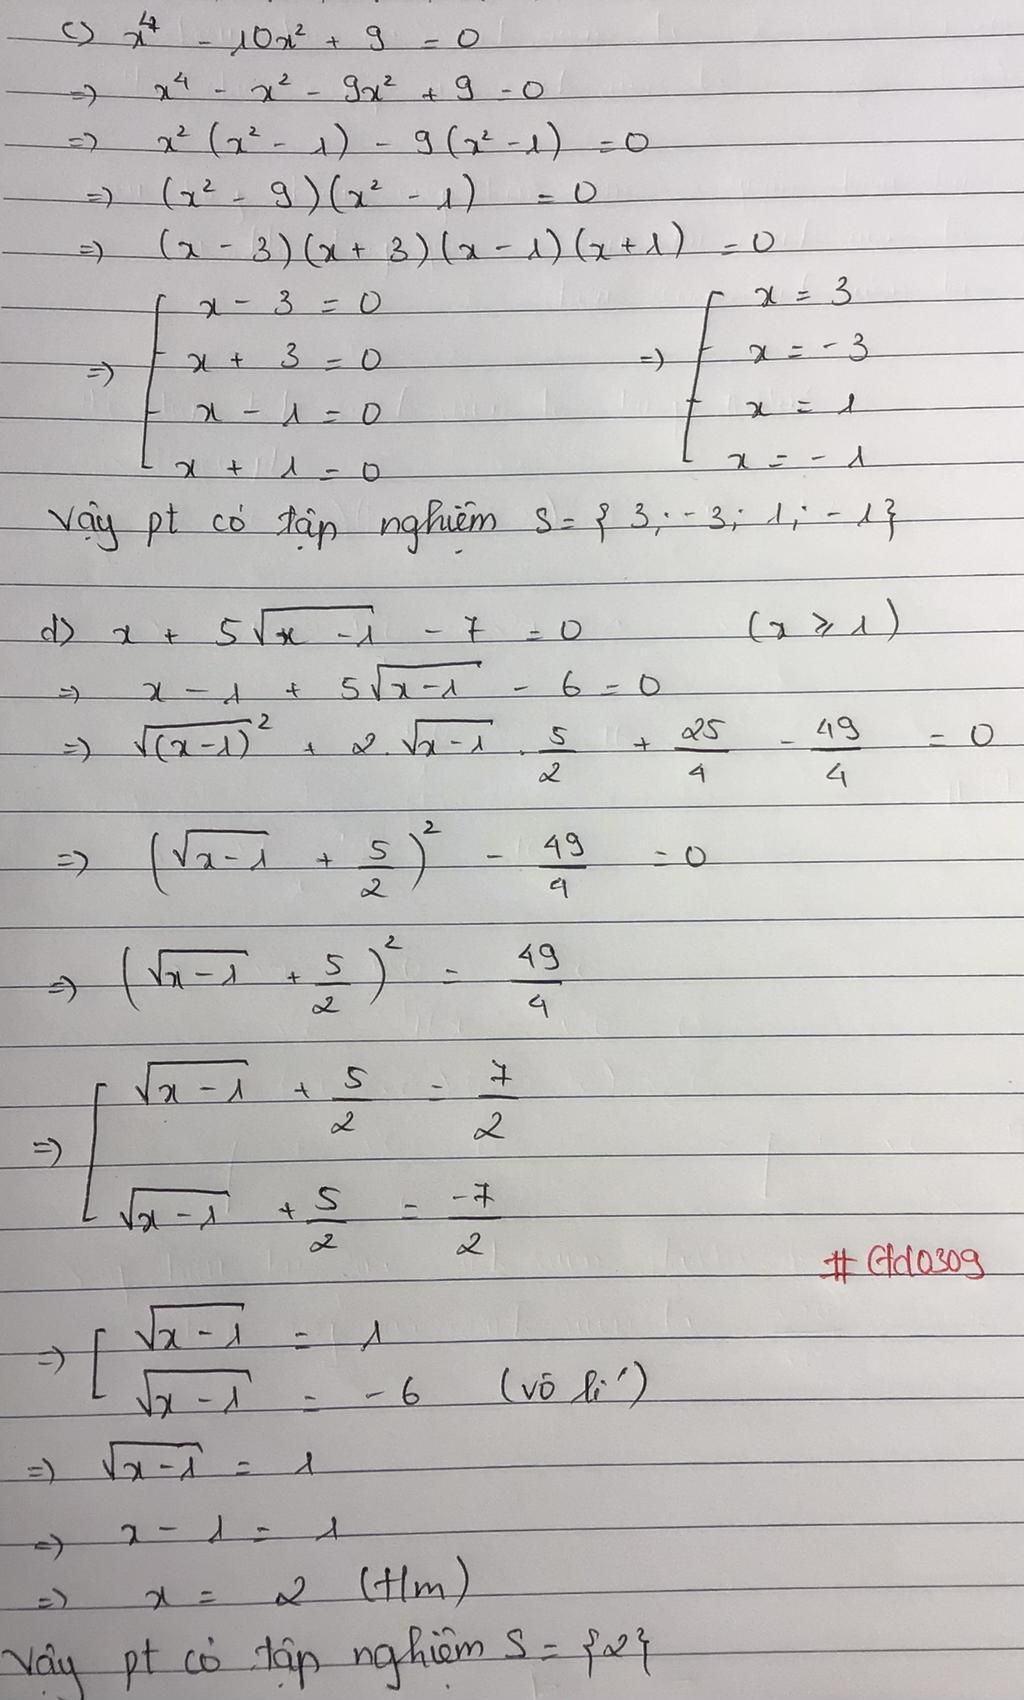 c) x⁴ - 10x² + 9 = 0
=> x⁴ - x² - 9x² + 9 = 0
=> x² (x² - 1) - 9(x² - 1) = 0
=> (x² - 9)(x² - 1) = 0
=> (x - 3)(x + 3)(x - 1)(x + 1) = 0
=> [ x - 3 = 0 => [ x = 3
x + 3 = 0 x = -3
x - 1 = 0 x = 1
x + 1 = 0 x = -1
Vậy pt có tập nghiệm S = { 3; -3; 1; -1}
d) x + 5√(x - 1) - 7 = 0 (x ⩾ 1)
=> x - 1 + 5√(x - 1) - 6 = 0
=> √(x - 1)² + 2.√(x - 1) . 5/2 + 25/4 - 49/4 = 0
=> (√(x - 1) + 5/2)² - 49/4 = 0
=> (√(x - 1) + 5/2)² = 49/4
=> [ √(x - 1) + 5/2 = 7/2
√(x - 1) + 5/2 = -7/2
# Gtd0309
=> [ √(x - 1) = 1
√(x - 1) = -6 (vô lí)
=> √(x - 1) = 1
=> x - 1 = 1
=> x = 2 (t/m)
Vậy pt có tập nghiệm S = {2}